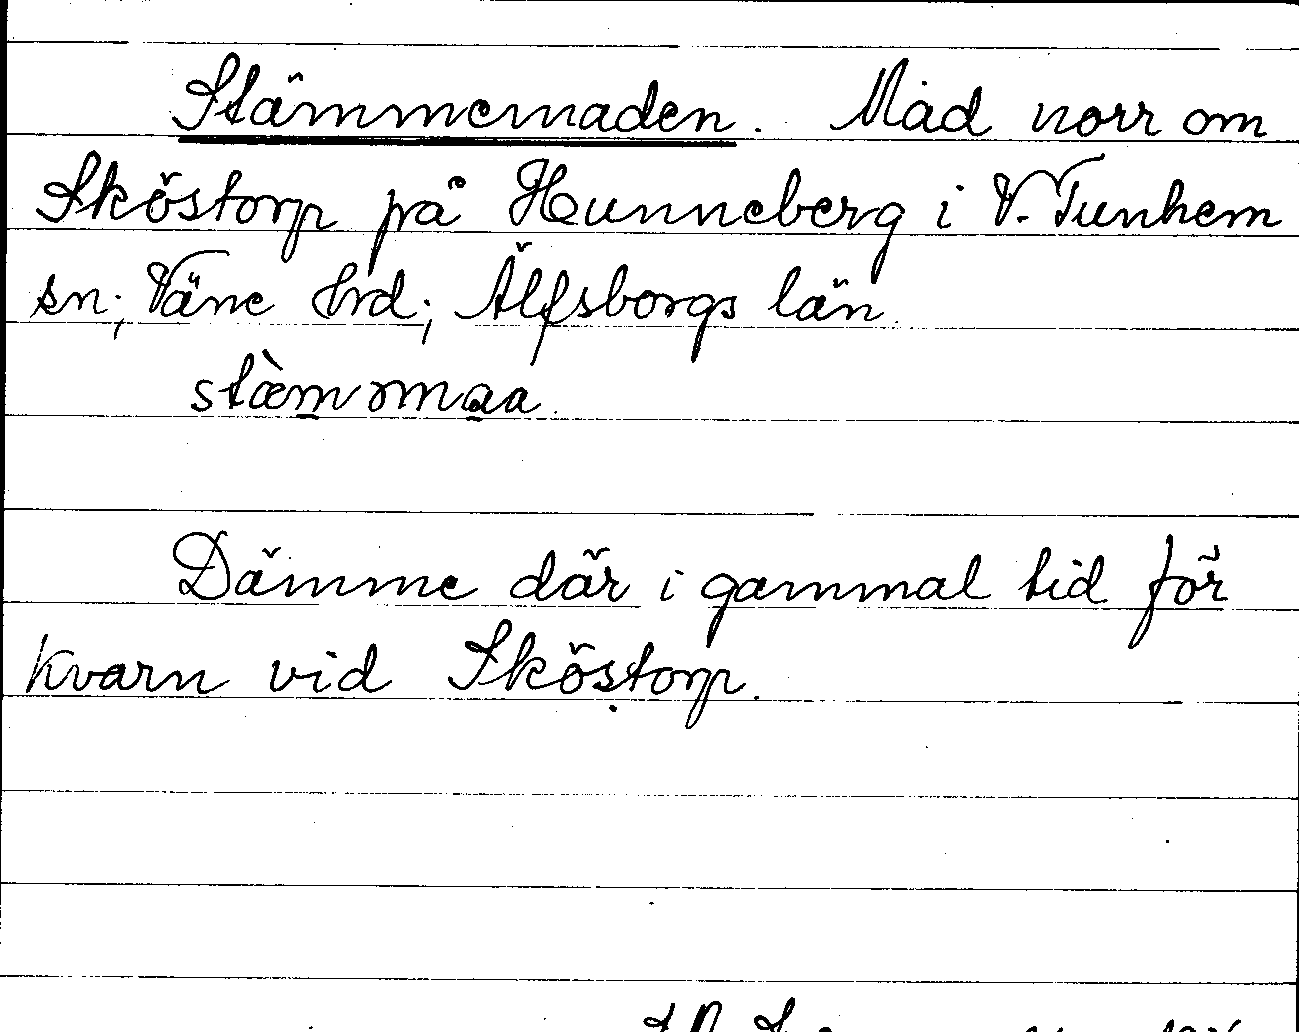 Stämmemaden. Mad norr om
Sköstorp på Hunneberg i V. Tunhem
sn; Väne hrd; Älfsborgs län.
stæ̀məmaa.
Dämme där i gammal tid för
kvarn vid Sköstorp.